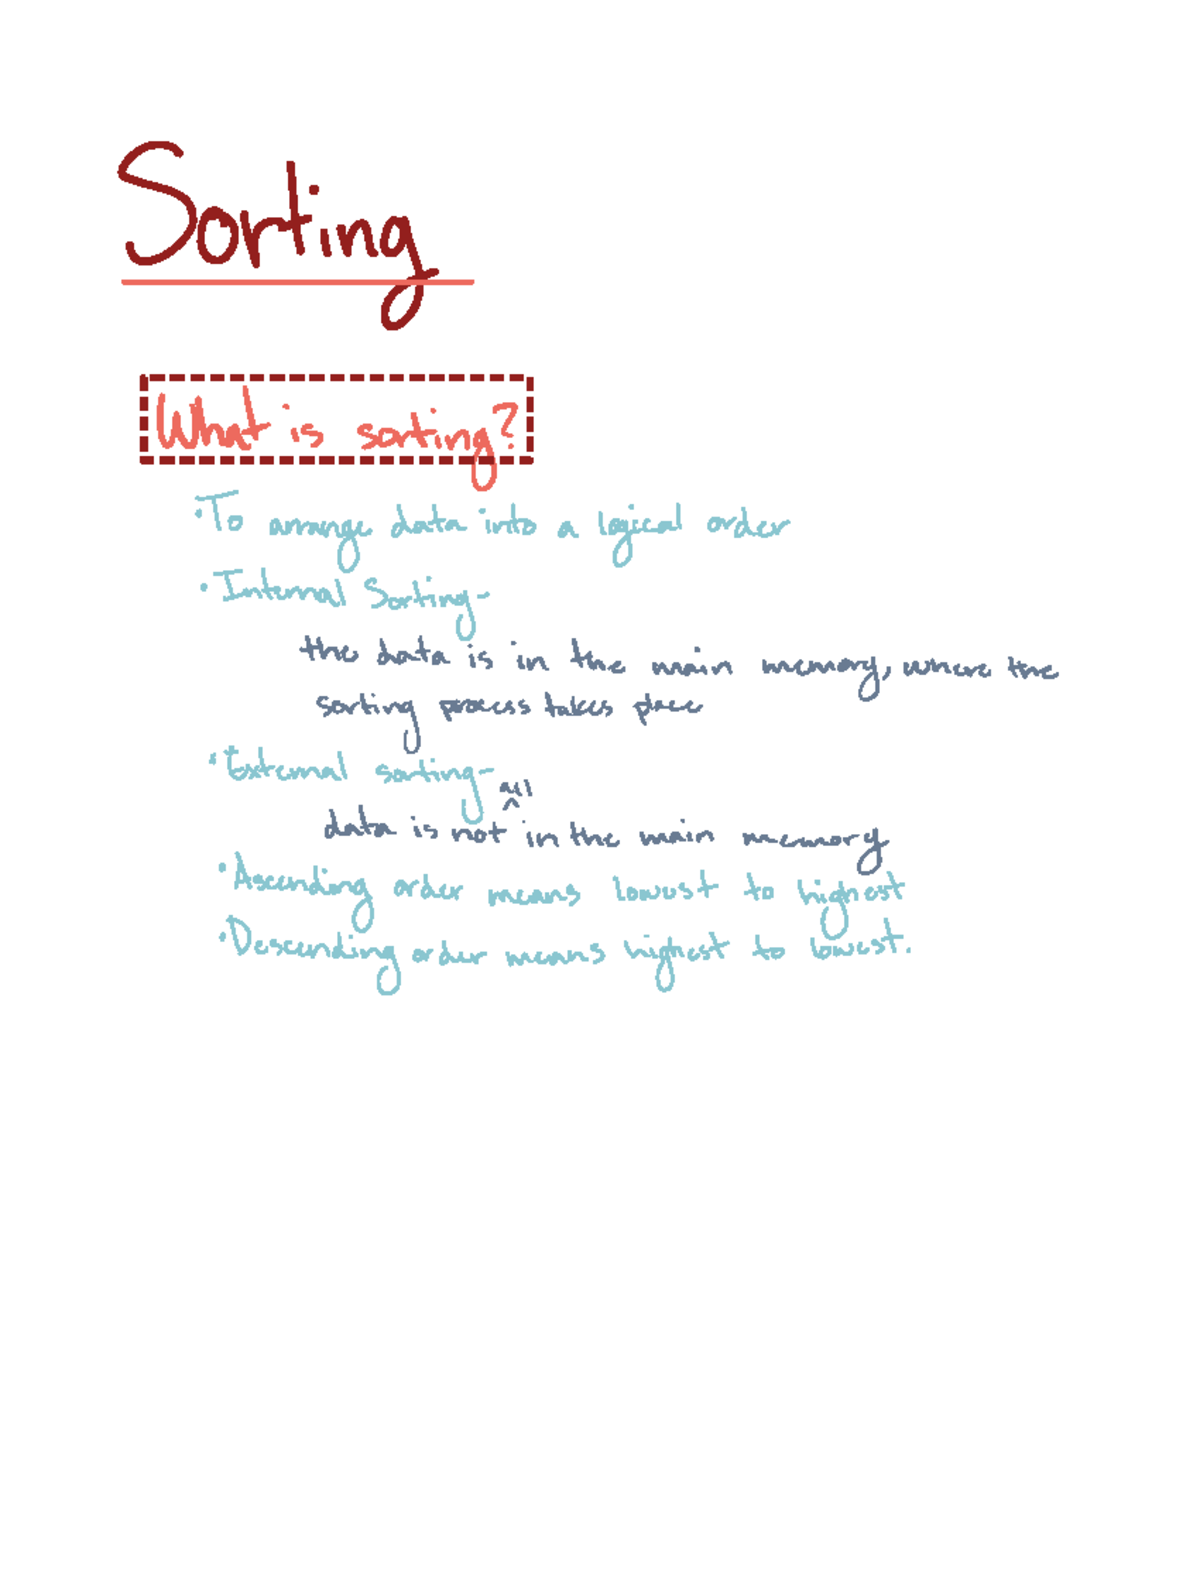 Sorting
What is sorting?
• To arrange data into a logical order
• Internal Sorting-
the data is in the main memory, where the
sorting process takes place
• External sorting-
all
data is not ^ in the main memory
• Ascending order means lowest to highest
• Descending order means highest to lowest.